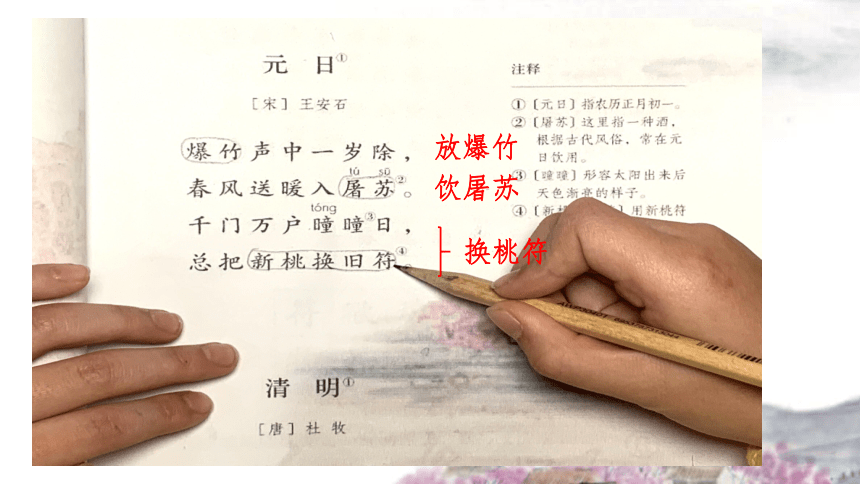 元 日①
[宋] 王安石
爆竹声中一岁除，
tú sū
春风送暖入屠苏②。
tóng
千门万户曈曈③日，
总把新桃换旧符④
放爆竹
饮屠苏
换桃符
注释
①〔元日〕指农历正月初一。
②〔屠苏〕这里指一种酒，
根据古代风俗，常在元
日饮用。
③〔曈曈〕形容太阳出来后
天色渐亮的样子。
④〔新桃 〕用新桃符
清 明①
[唐] 杜 牧